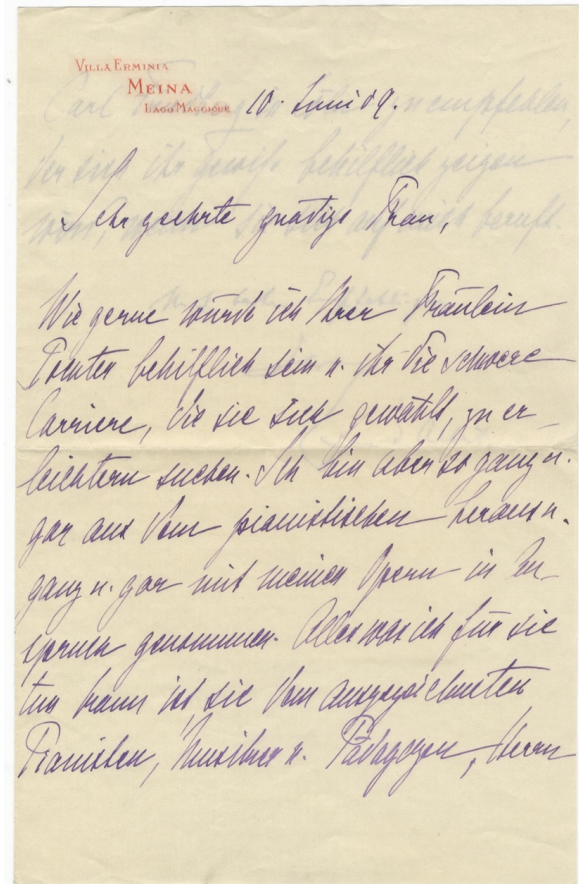 VILLA ERMINIA
MEINA
LAGO MAGGIORE
10. Juni 09.
Sehr geehrte gnädige Frau,
Wie gerne würde ich Ihrer Fräulein
Tochter behilflich sein u. ihr die schwere
Carriere, die sie sich gewählt, zu er-
leichtern suchen. Ich bin aber so ganz u.
gar aus dem pianistischen heraus u.
ganz u. gar mit meinen Opern in An-
spruch genommen. Alles was ich für sie
tun kann ist sie dem ausgezeichneten
Pianisten, Musiker u. Pädagogen, Herrn